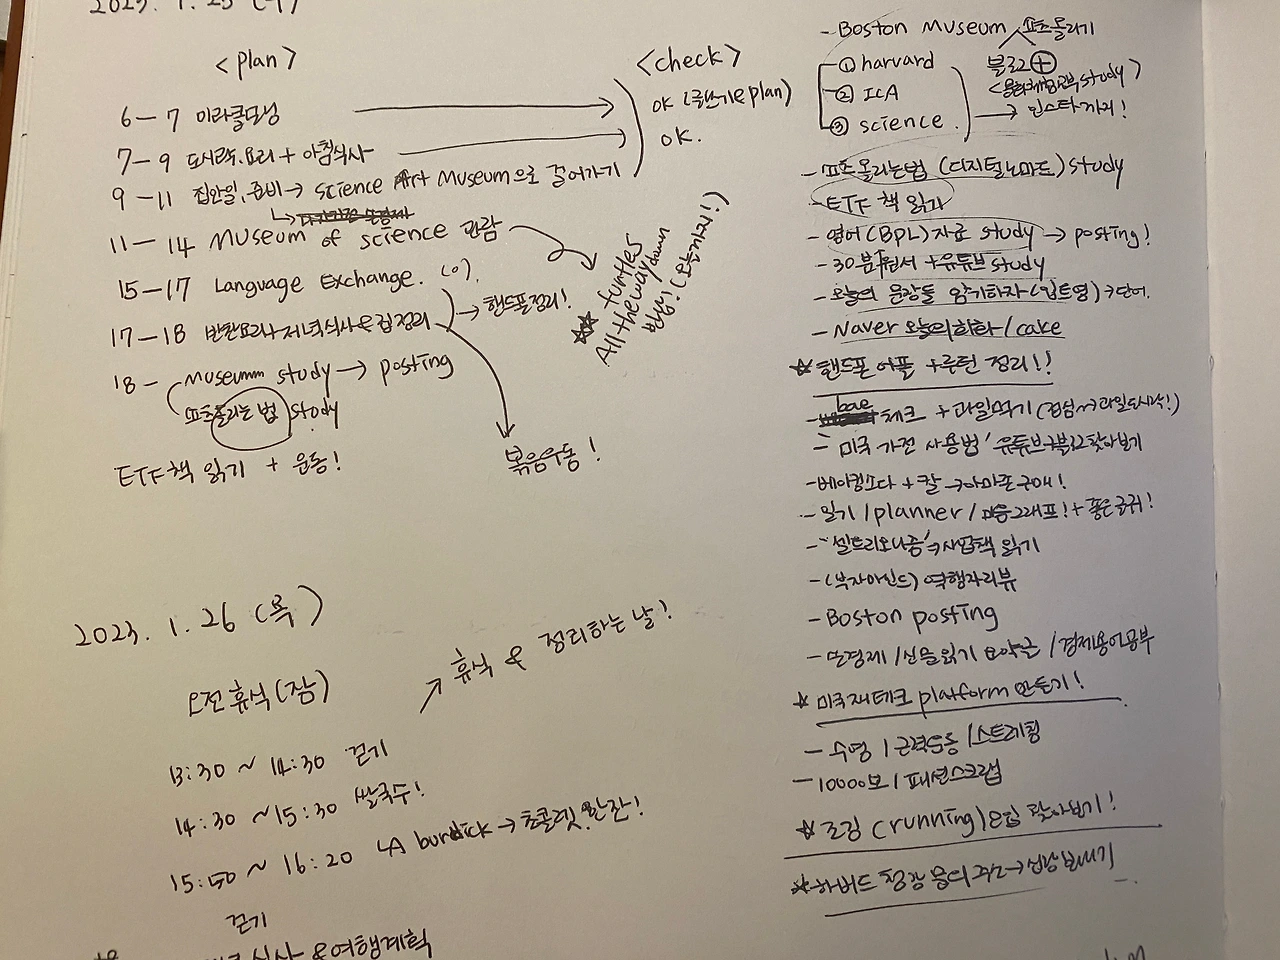 2023. 1. 25 (수)
<plan>
<check>
6 — 7 미라클모닝
OK (글쓰기 & plan)
7 — 9 도시락, 요리 + 아침식사
OK.
9 — 11 집안일, 준비 → science Art Museum으로 걸어가기
11 — 14 Museum of science 관람
15 — 17 Language Exchange. (o).
17 — 18 반찬요리 → 저녁식사 & 집정리
→ 핸드폰정리!
☆☆ turtles
All the way down
18 — Museum study → posting
쇼츠올리는 법 study
ETF 책 읽기 + 운동!
복음우동!
2023. 1. 26 (목)
↗ 휴식 & 정리하는 날!
오전 휴식 (잠)
13:30 ~ 14:30 걷기
14:30 ~ 15:30 쌀국수!
15:50 ~ 16:20 LA burdick → 초콜렛 한잔!
걷기
식사 & 여행계획
- Boston Museum 쇼츠올리기
① harvard 블로그 +
② ICA study)
③ science. → 인스타까지!
- 쇼츠 올리는법 (디지털노마드) study
- ETF 책 읽기
- 영어 (BPL) 자료 study → posting!
- 30분 원서 + 유튜브 study
- 오늘의 문장들 암기하자 (입트영) → 단어.
- Naver 오늘의 회화 / cake
☆ 핸드폰 어플 + 루틴 정리!!
- bae 체크 + 과일먹기 (점심 → 과일도시락!)
- 미국 가전 사용법' 유튜브 + 블로그 찾아보기
- 베이킹소다 + 칼 → 아마존 구매!
- 일기 / planner / 마음그래프! + 좋은글귀!
- "셀트리오나좀" → 사업책 읽기
- (부자마인드) 역행자 리뷰
- Boston posting
- 손경제 / 신문읽기 요약근 / 경제용어공부
☆ 미국 재테크 platform 만들기!
- 수영 / 근력운동 / 스트레칭
- 10000보 / 패션스크랩
☆ 조깅 (running) 모임 찾아보기!
☆ 하버드 청강 문의